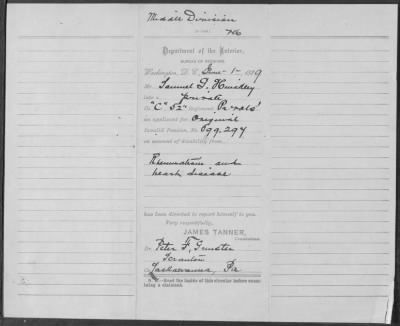 Middle Division
Department of the Interior,
BUREAU OF PENSIONS,
Washington, D. C., June 1 - 1889
Mr. Samuel
late a private
Co. "C" 52" Regiment Pa Vols'
an applicant for Original
Invalid Pension, No. 699.297
on account of disability from
Rheumatism and
heart disease
has been directed to report himself to you.
Very respectfully,
JAMES TANNER,
Commissioner.
Dr. Peter F. Gunster
Scranton
Lackawanna, Pa
N. B.—Read the inside of this circular before exam-
ining a claimant.